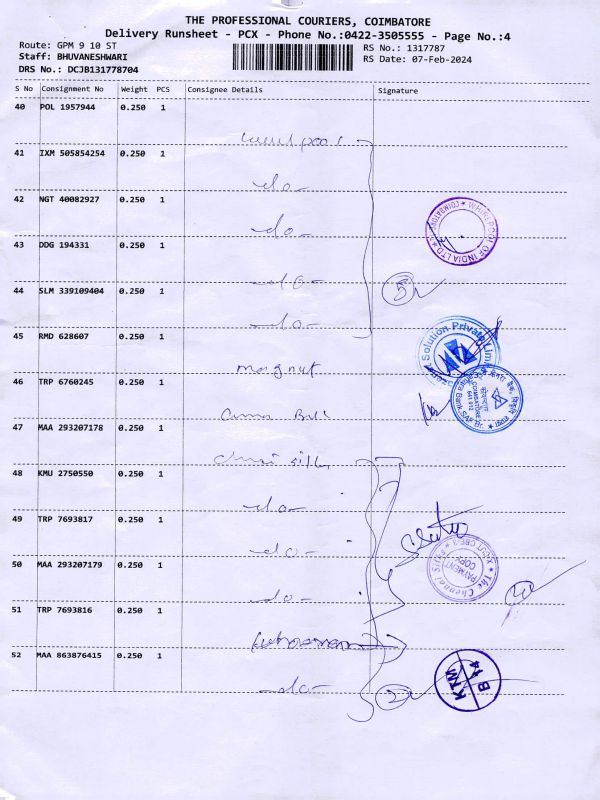 THE PROFESSIONAL COURIERS, COIMBATORE
Delivery Runsheet - PCX - Phone No.:0422-3505555 - Page No.:4
Route: GPM 9 10 ST
Staff: BHUVANESHWARI
DRS No.: DCJB131778704
RS No.: 1317787
RS Date: 07-Feb-2024
S No Consignment No Weight PCS Consignee Details Signature
40 POL 1957944 0.250 1
41 IXM 505854254 0.250 1
do
42 NGT 40082927 0.250 1
do
43 DDG 194331 0.250 1
do
44 SLM 339109404 0.250 1
do
WHIRLPOOL OF INDIA LTD
COIMBATORE
5
45 RMD 628607 0.250 1
Solution Private Limi
46 TRP 6760245 0.250 1
COIMBATORE
47 MAA 293207178 0.250 1
48 KMU 2750550 0.250 1
do
49 TRP 7693817 0.250 1
do
50 MAA 293207179 0.250 1
do
The Chennai Silks
PAYMENT
COPY
51 TRP 7693816 0.250 1
52 MAA 863876415 0.250 1
do
2
KTM
B 14